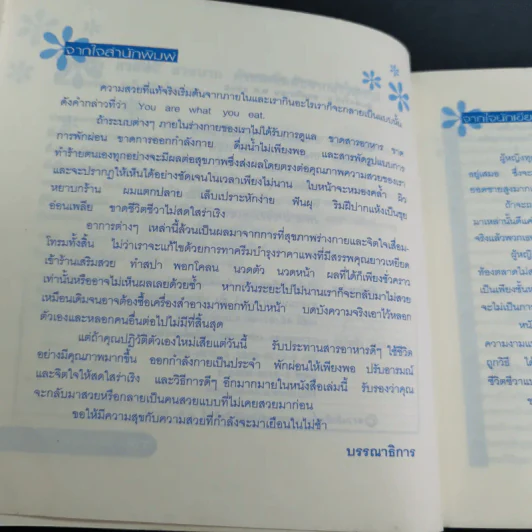 จากใจสำนักพิมพ์
ความสวยที่แท้จริงเริ่มต้นจากภายในและเรากินอะไรเราก็จะกลายเป็นแบบนั้น
ดังคำกล่าวที่ว่า You are what you eat.
ถ้าระบบต่างๆ ภายในร่างกายของเราไม่ได้รับการดูแล ขาดสารอาหาร ขาด
การพักผ่อน ขาดการออกกำลังกาย ดื่มน้ำไม่เพียงพอ และสารพัดรูปแบบการ
ทำร้ายตนเองทุกอย่างจะมีผลต่อสุขภาพซึ่งส่งผลโดยตรงต่อคุณภาพความสวยของเรา
และจะปรากฏให้เห็นได้อย่างชัดเจนในเวลาเพียงไม่นาน ใบหน้าจะหมองคล้ำ ผิว
หยาบกร้าน ผมแตกปลาย เล็บเปราะหักง่าย ฟันผุ ริมฝีปากแห้งเป็นขุย
อ่อนเพลีย ขาดชีวิตชีวาไม่สดใสร่าเริง
อาการต่างๆ เหล่านี้ล้วนเป็นผลมาจากการที่สุขภาพร่างกายและจิตใจเสื่อม-
โทรมทั้งสิ้น ไม่ว่าเราจะแก้ไขด้วยการทาครีมบำรุงราคาแพงที่มีสรรพคุณยาวเหยียด
เข้าร้านเสริมสวย ทำสปา พอกโคลน นวดตัว นวดหน้า ผลที่ได้ก็เพียงชั่วคราว
เท่านั้นหรืออาจไม่เห็นผลเลยด้วยซ้ำ หากเว้นระยะไปไม่นานเราก็จะกลับมาไม่สวย
เหมือนเดิมจนอาจต้องซื้อเครื่องสำอางมาพอกทับใบหน้า บดบังความจริงเอาไว้หลอก
ตัวเองและหลอกคนอื่นต่อไปไม่มีที่สิ้นสุด
แต่ถ้าคุณปฏิวัติตัวเองใหม่เสียแต่วันนี้ รับประทานสารอาหารดีๆ ใช้ชีวิต
อย่างมีคุณภาพมากขึ้น ออกกำลังกายเป็นประจำ พักผ่อนให้เพียงพอ ปรับอารมณ์
และจิตใจให้สดใสร่าเริง และวิธีการดีๆ อีกมากมายในหนังสือเล่มนี้ รับรองว่าคุณ
จะกลับมาสวยหรือกลายเป็นคนสวยแบบที่ไม่เคยสวยมาก่อน
ขอให้มีความสุขกับความสวยที่กำลังจะมาเยือนในไม่ช้า
บรรณาธิการ
จากใจนักเขียน
ผู้หญิง
อยู่เสมอ
ถ้าจะ
จริงแล้วพวกเธอ
ผู้หญิ
จะไม่เป็นการ
ความงาม
ถูกวิธี